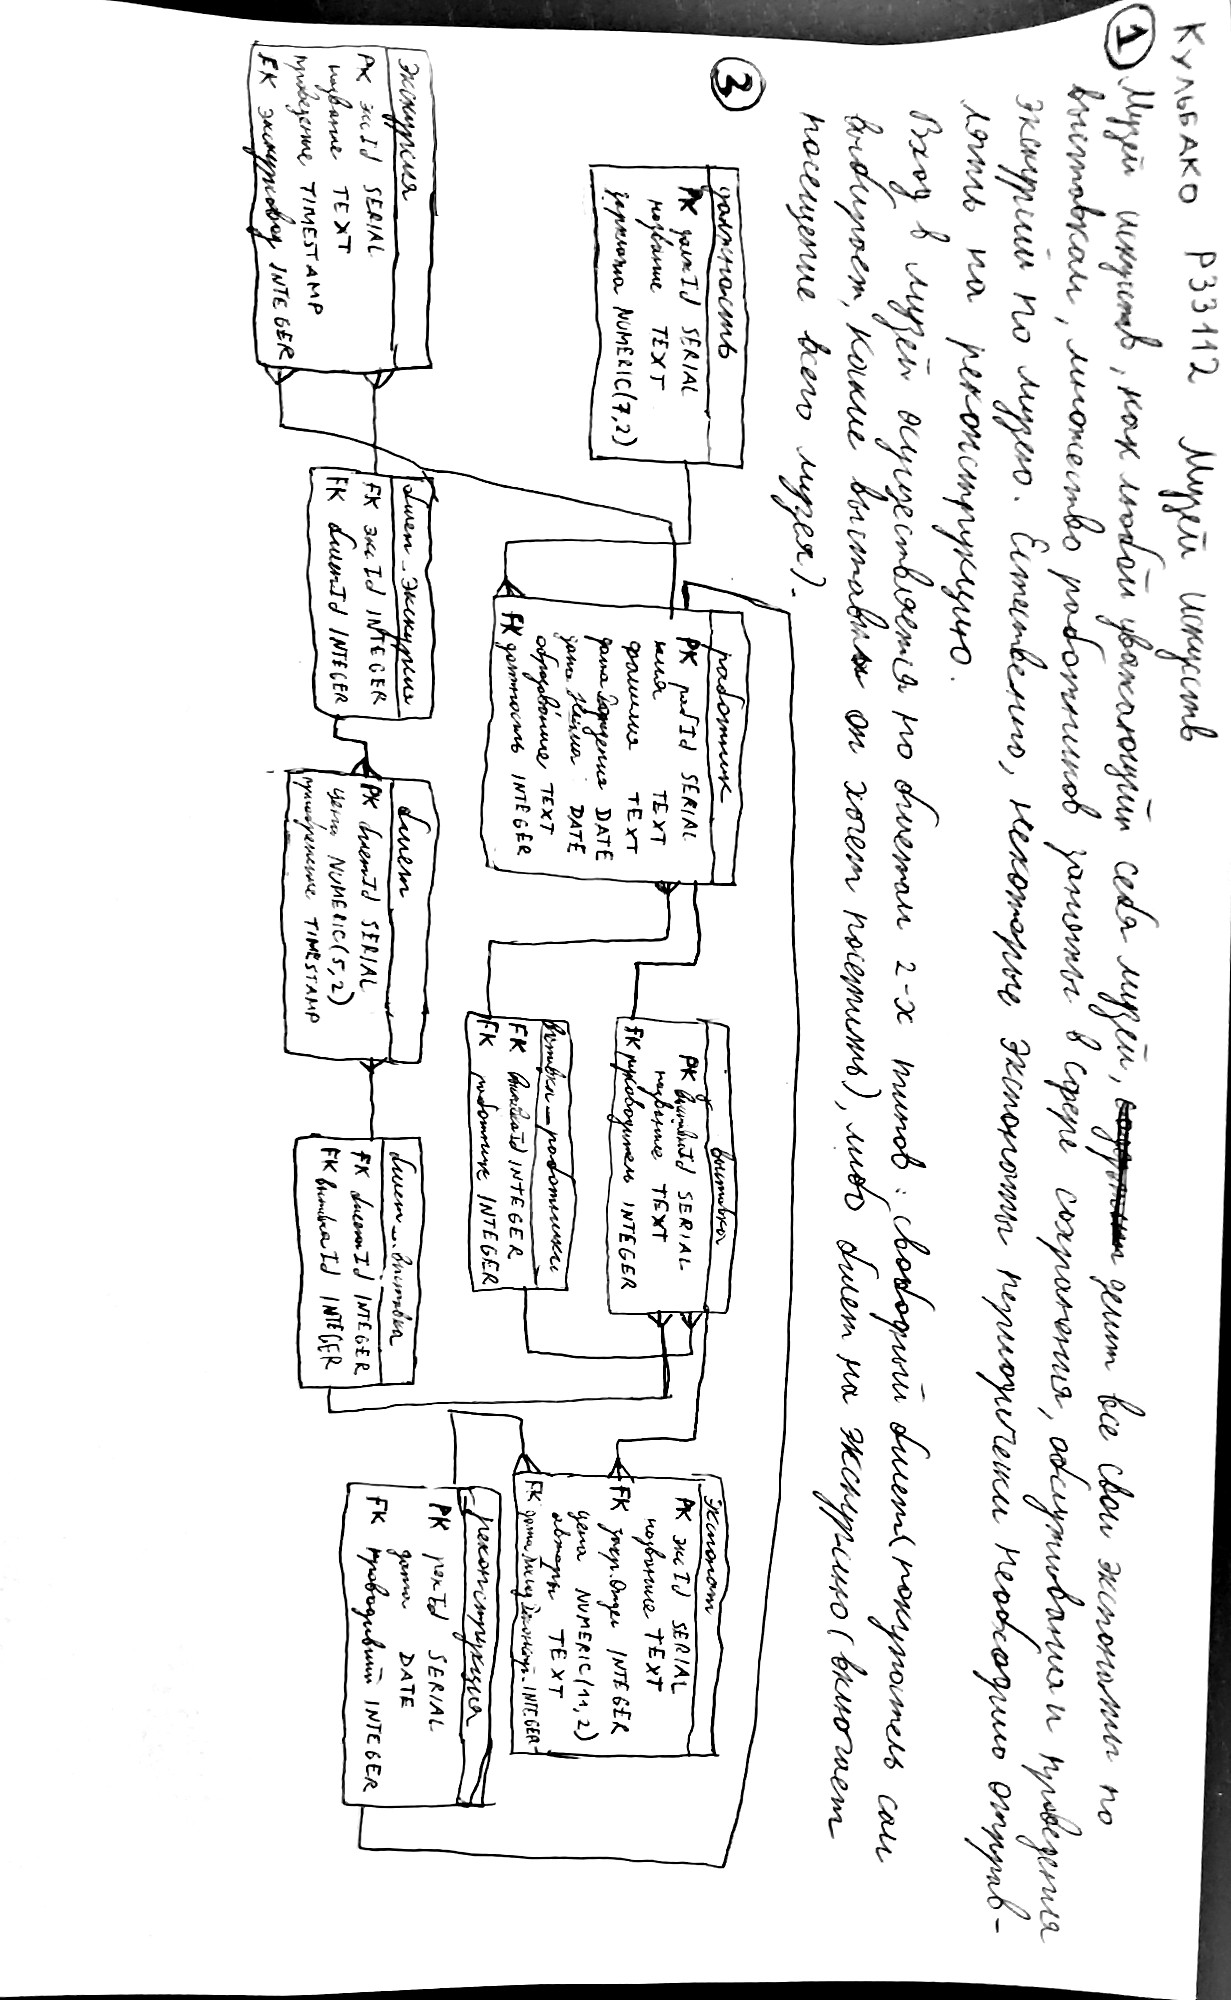 Кульбако Р33112 Музей искусств
1 Музей искусств, как любой уважающий себя музей, делит все свои экспонаты по
выставкам, множество работников заняты в сфере сохранения, обслуживания и проведения
экскурсий по музею. Естественно, некоторые экспонаты периодически необходимо отправ-
лять на реконструкцию.
Вход в музей осуществляется по билетам 2-х типов: свободный билет (покупатель сам
выбирает, какие выставки он хочет посетить), либо билет на экскурсию (включает
посещение всего музея).
3
должность
PK должId SERIAL
название TEXT
зарплата NUMERIC(7,2)
работник
PK рабId SERIAL
имя TEXT
фамилия TEXT
дата Рождения DATE
дата Найма DATE
образование TEXT
FK должность INTEGER
выставка
PK выставкаId SERIAL
название TEXT
FK руководитель INTEGER
выставка_работники
FK выставкаId INTEGER
FK работник INTEGER
экспонат
PK эксId SERIAL
название TEXT
FK INTEGER
цена NUMERIC(11,2)
авторы TEXT
FK INTEGER
реконструкция
PK рекId SERIAL
дата DATE
FK проводивший INTEGER
экскурсия
PK эксId SERIAL
название TEXT
проведение TIMESTAMP
FK экскурсовод INTEGER
билет_экскурсия
FK эксId INTEGER
FK билетId INTEGER
билет
PK билетId SERIAL
цена NUMERIC(5,2)
приобретение TIMESTAMP
билет_выставка
FK билетId INTEGER
FK выставкаId INTEGER